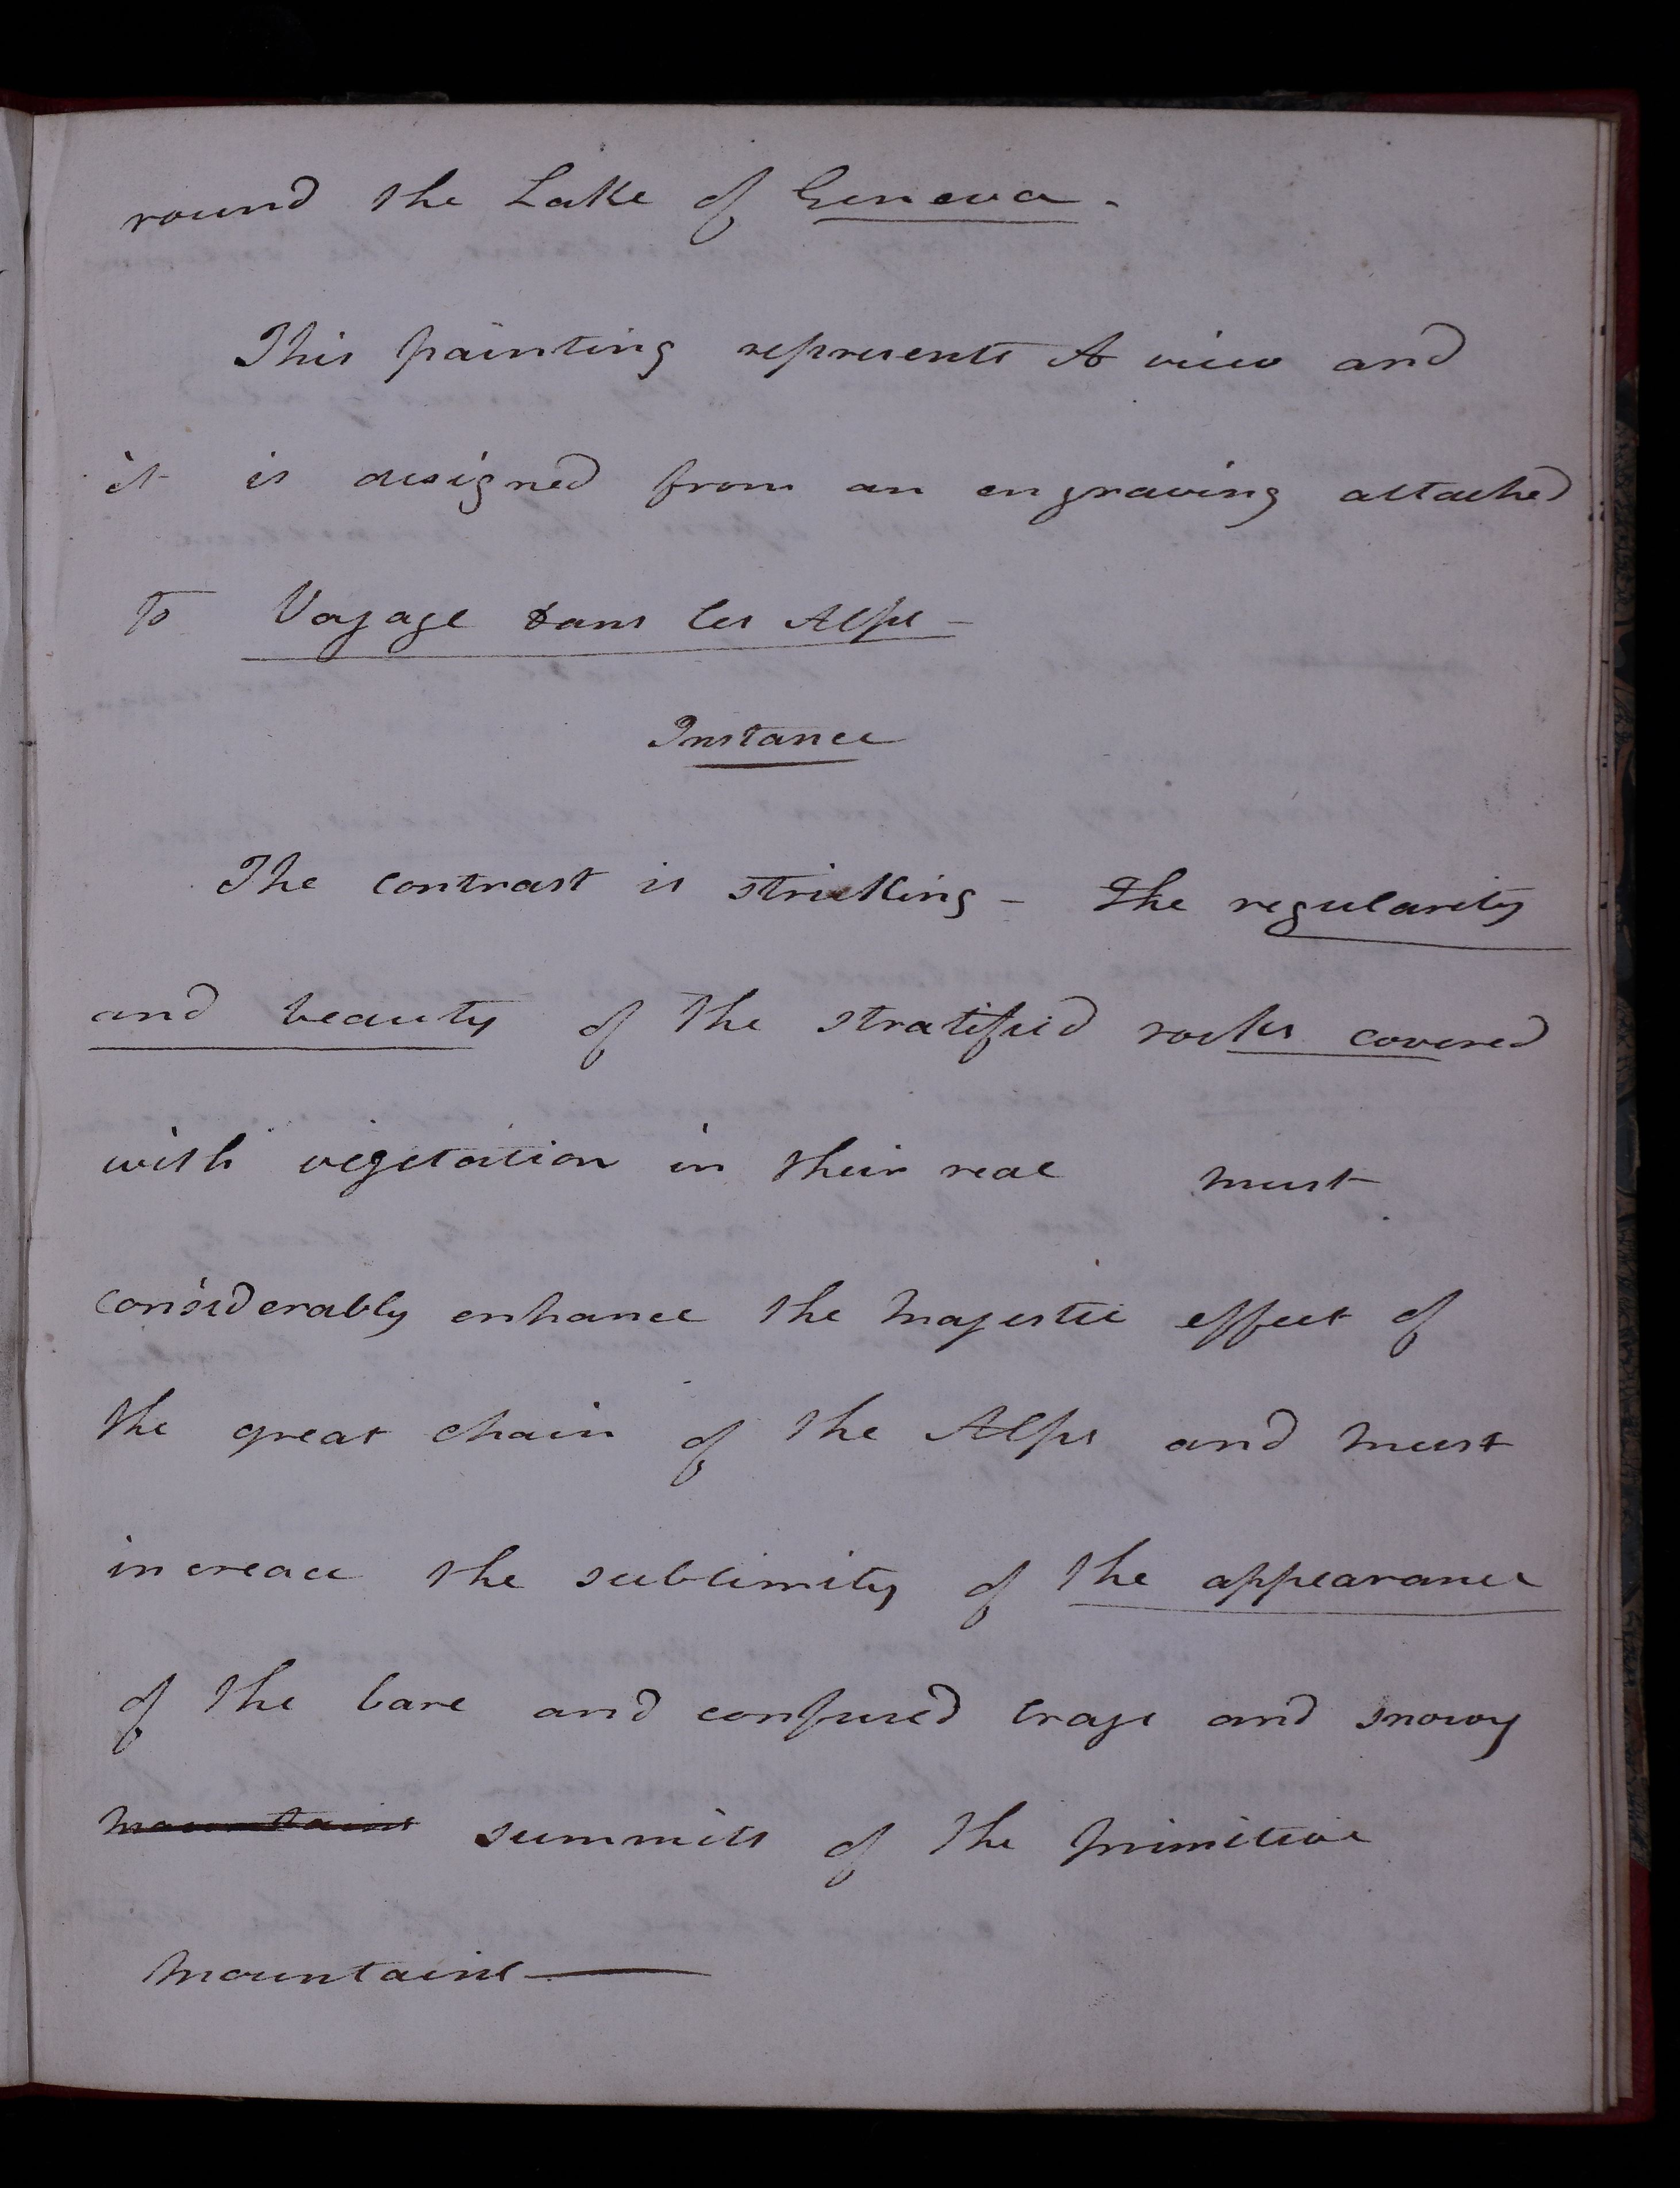 round the Lake of Geneva.
This painting represents A view and
it is designed from an engraving attached
To Voyage dans les Alps -
Instance
The contrast is stricking - The regularity
and beauty of The stratified rocks covered
with vegetation in their real must
considerably enhance the majestic effect of
the great chain of the Alps and must
increace the sublimity of the appearance
of The bare and confused crags and snowy
mountains summits of The primitive
mountains —